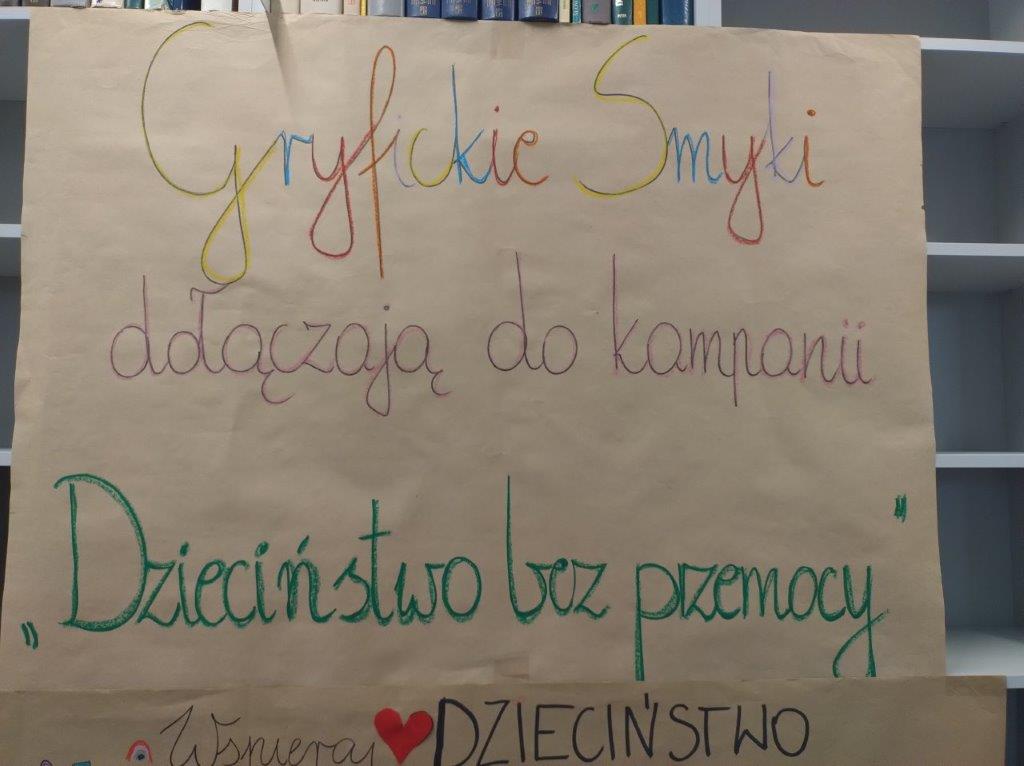 Gryfickie Smyki
dołączają do kampanii
„Dzieciństwo bez przemocy"
Wspieraj ❤ DZIECIŃSTWO